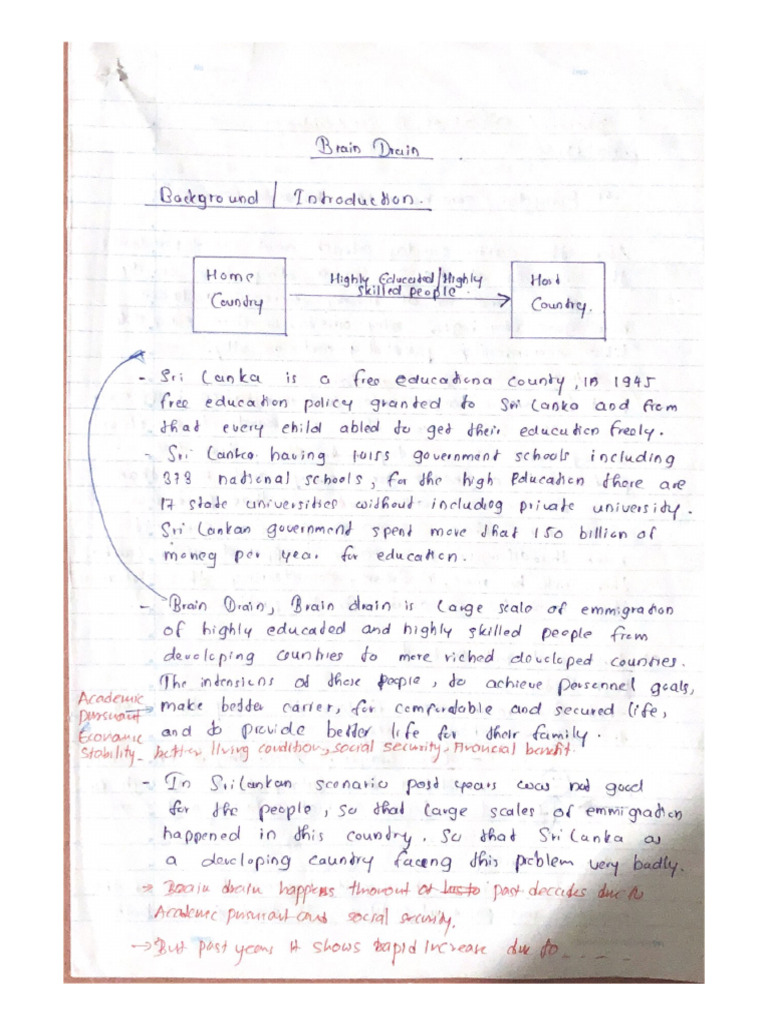 Brain Drain
Background / Introduction.
Home
Country
Highly Educated/Highly
skilled people
Host
Country.
- Sri Lanka is a free educationa county, in 1945
free education policy granted to Sri Lanka and from
that every child abled to get their education freely.
- Sri Lanka having 10155 government schools including
373 national schools, for the high Education there are
17 state universities without including private university.
Sri Lankan government spend more that 150 billion of
money per year for education.
- Brain Drain, Brain drain is Large scale of emmigration
of highly educated and highly skilled people from
developing countries to more riched developed counties.
The intensions of these people, to achieve personnel goals,
make better carrier, for comfordable and secured life,
and to provide better life for their family.
Academic
pursuant
Economic
Stability - better living condition, social security - financial benefit.
- In Srilankan scenario past years was not good
for the people, so that large scales of emmigration
happened in this country. So that Sri Lanka as
a developing country faceng this problem very badly.
→ Brain drain happens throuout past decades due to
Academic pursuant and social security.
→ But past years it shows rapid increase due to - - - -